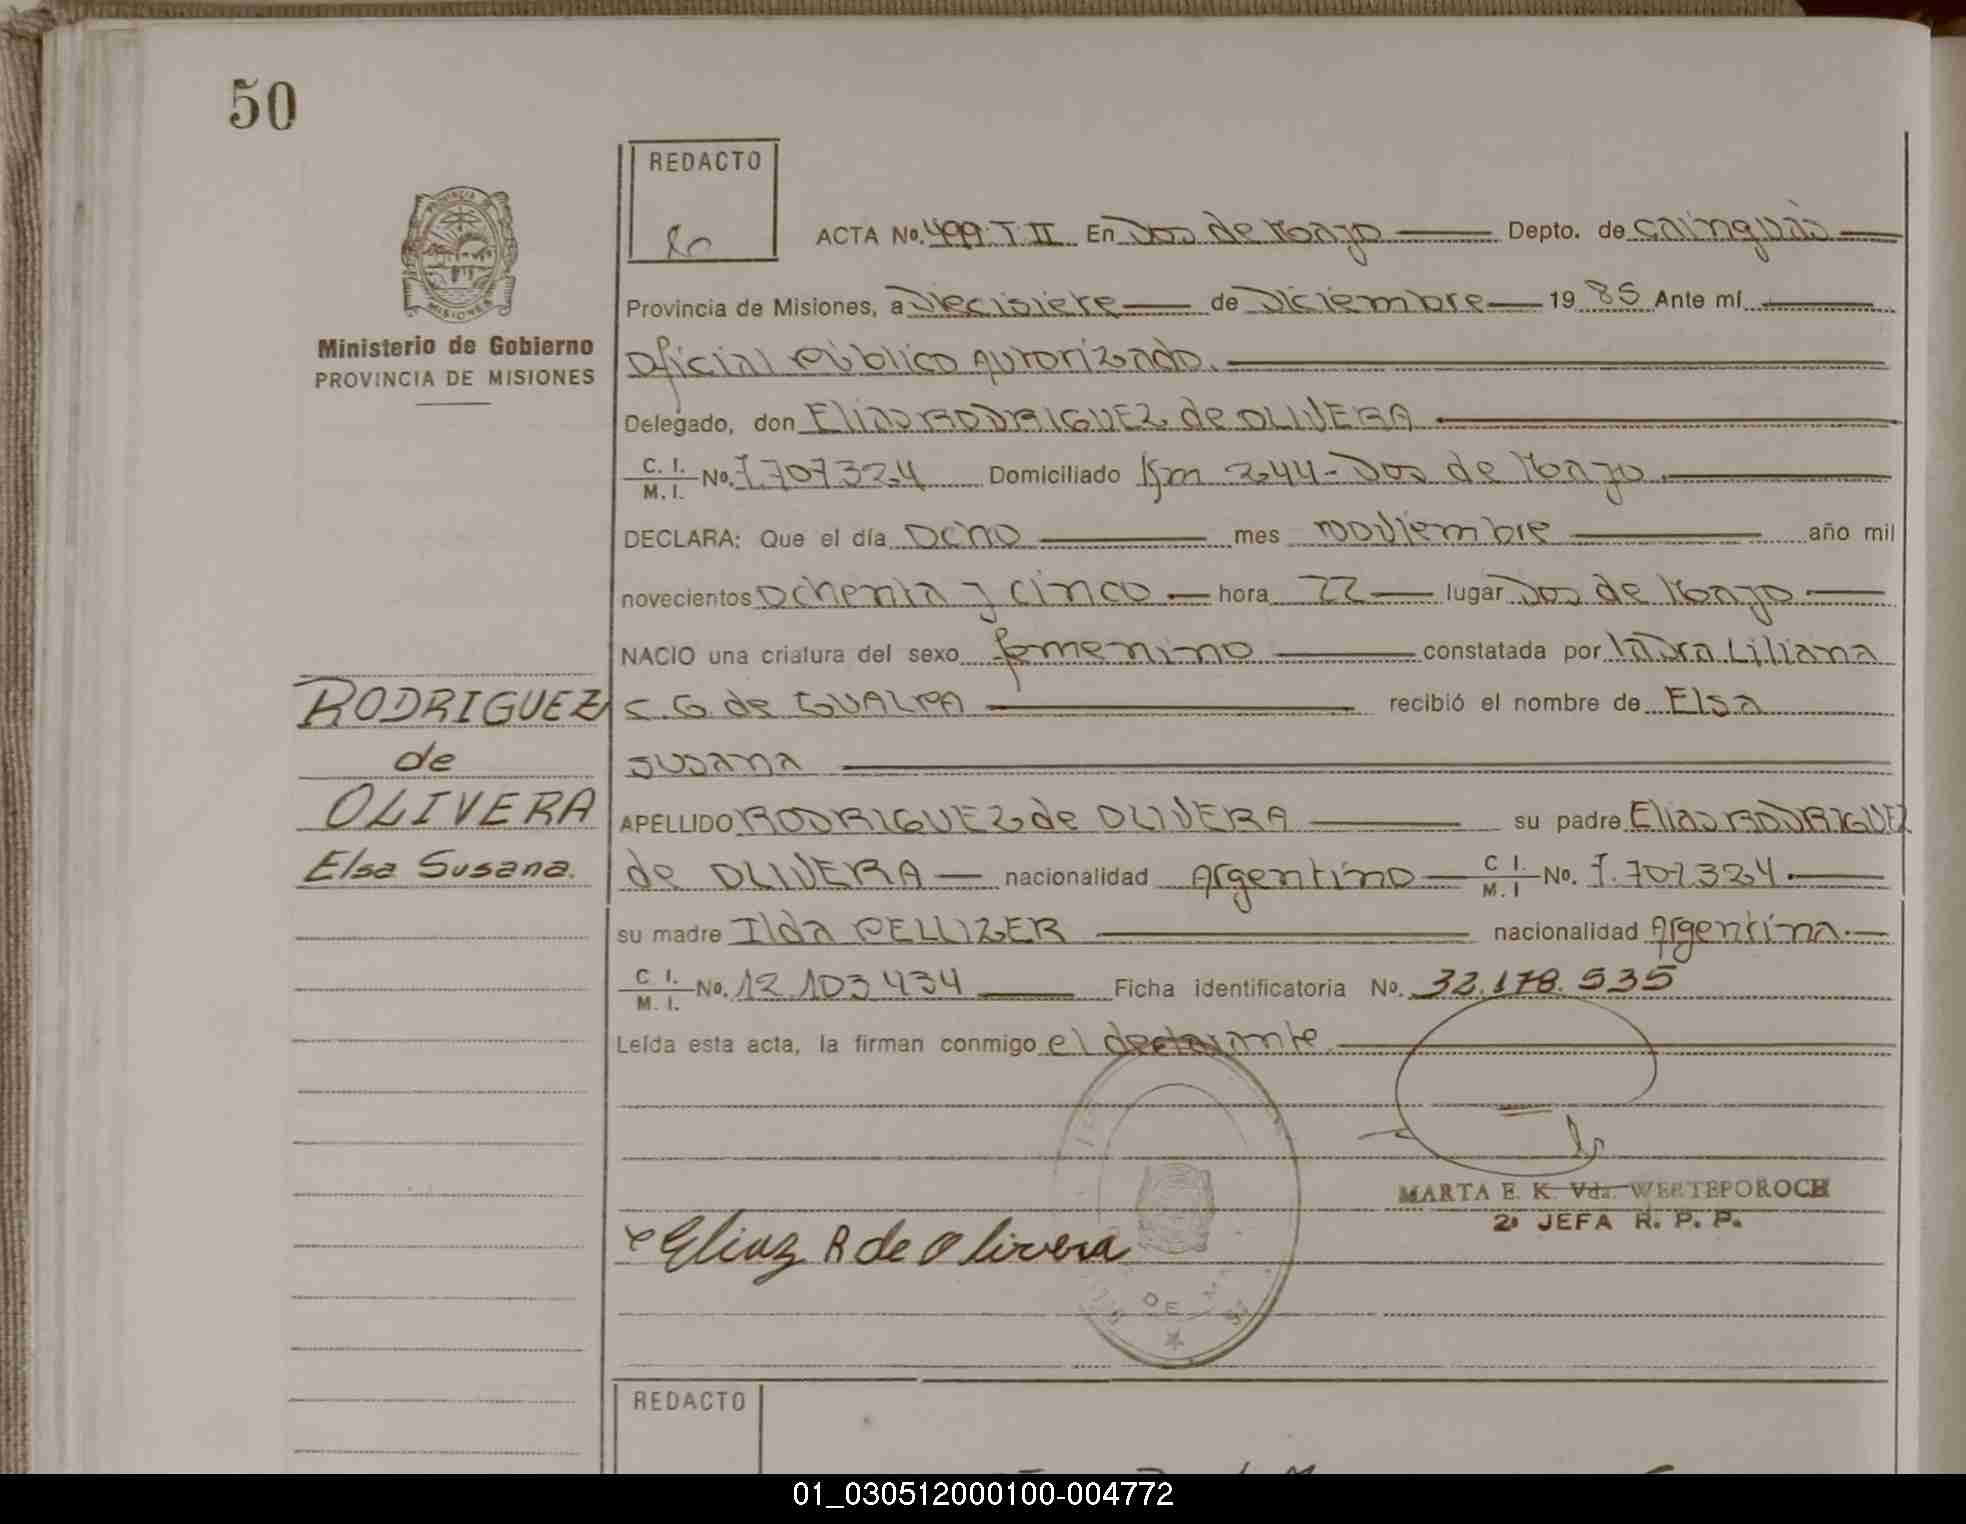 50
REDACTO
ACTA No. 499. T II En Dos de Mayo Depto. de Cainguás
PROVINCIA DE
MISIONES
Ministerio de Gobierno
PROVINCIA DE MISIONES
Provincia de Misiones, a Diecisiete de Diciembre 19 85 Ante mí
Oficial Público Autorizado.
Delegado, don Elias RODRIGUEZ de OLIVERA
C. I.
M. I. No. 7.707.324 Domiciliado Km 244 - Dos de Mayo.
DECLARA: Que el día Ocho mes noviembre año mil
novecientos Ochenta y cinco hora 22 lugar Dos de Mayo
NACIO una criatura del sexo femenino constatada por la Dra. Liliana
RODRIGUEZ
C. G. de GUALPA recibió el nombre de Elsa
de
Susana
OLIVERA
APELLIDO RODRIGUEZ de OLIVERA su padre Elias RODRIGUEZ
Elsa Susana.
de OLIVERA nacionalidad Argentino C I.
M. I No. 7.707.324.
su madre Ilda PELLIZER nacionalidad Argentina.
C I.
M. I. No. 12.103.434 Ficha identificatoria No. 32.178.535
Leída esta acta, la firman conmigo el declarante.
MARTA E. K. Vda. WERTEPOROCH
2a JEFA R. P. P.
x Eliaz R de Olivera
DE
REDACTO
01_030512000100-004772